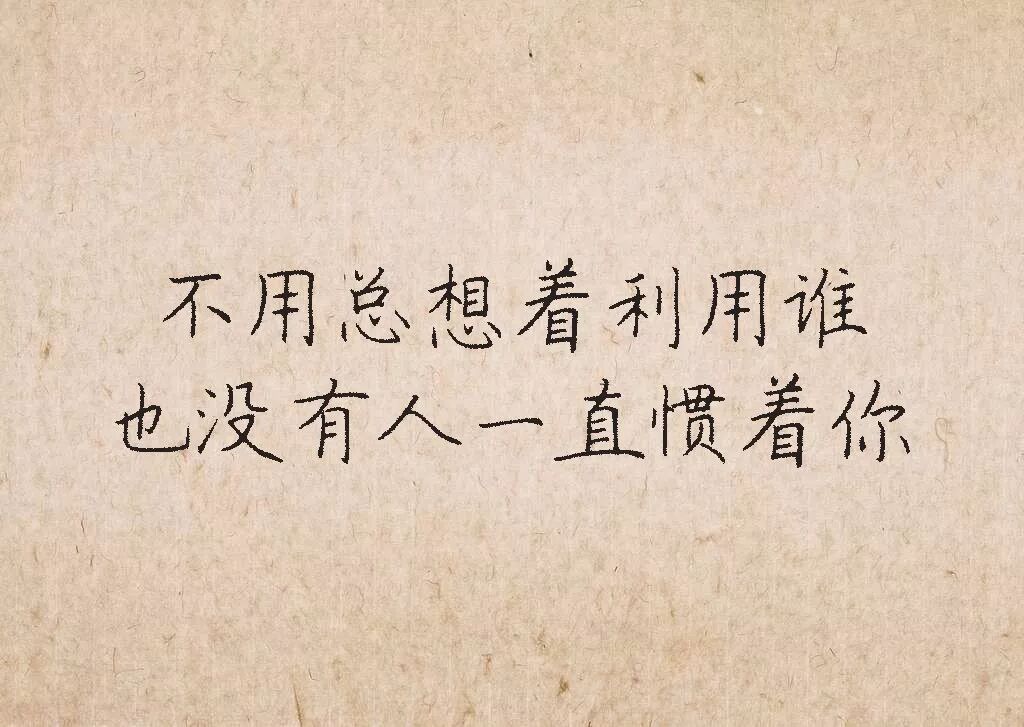 不用总想着利用谁
也没有人一直惯着你